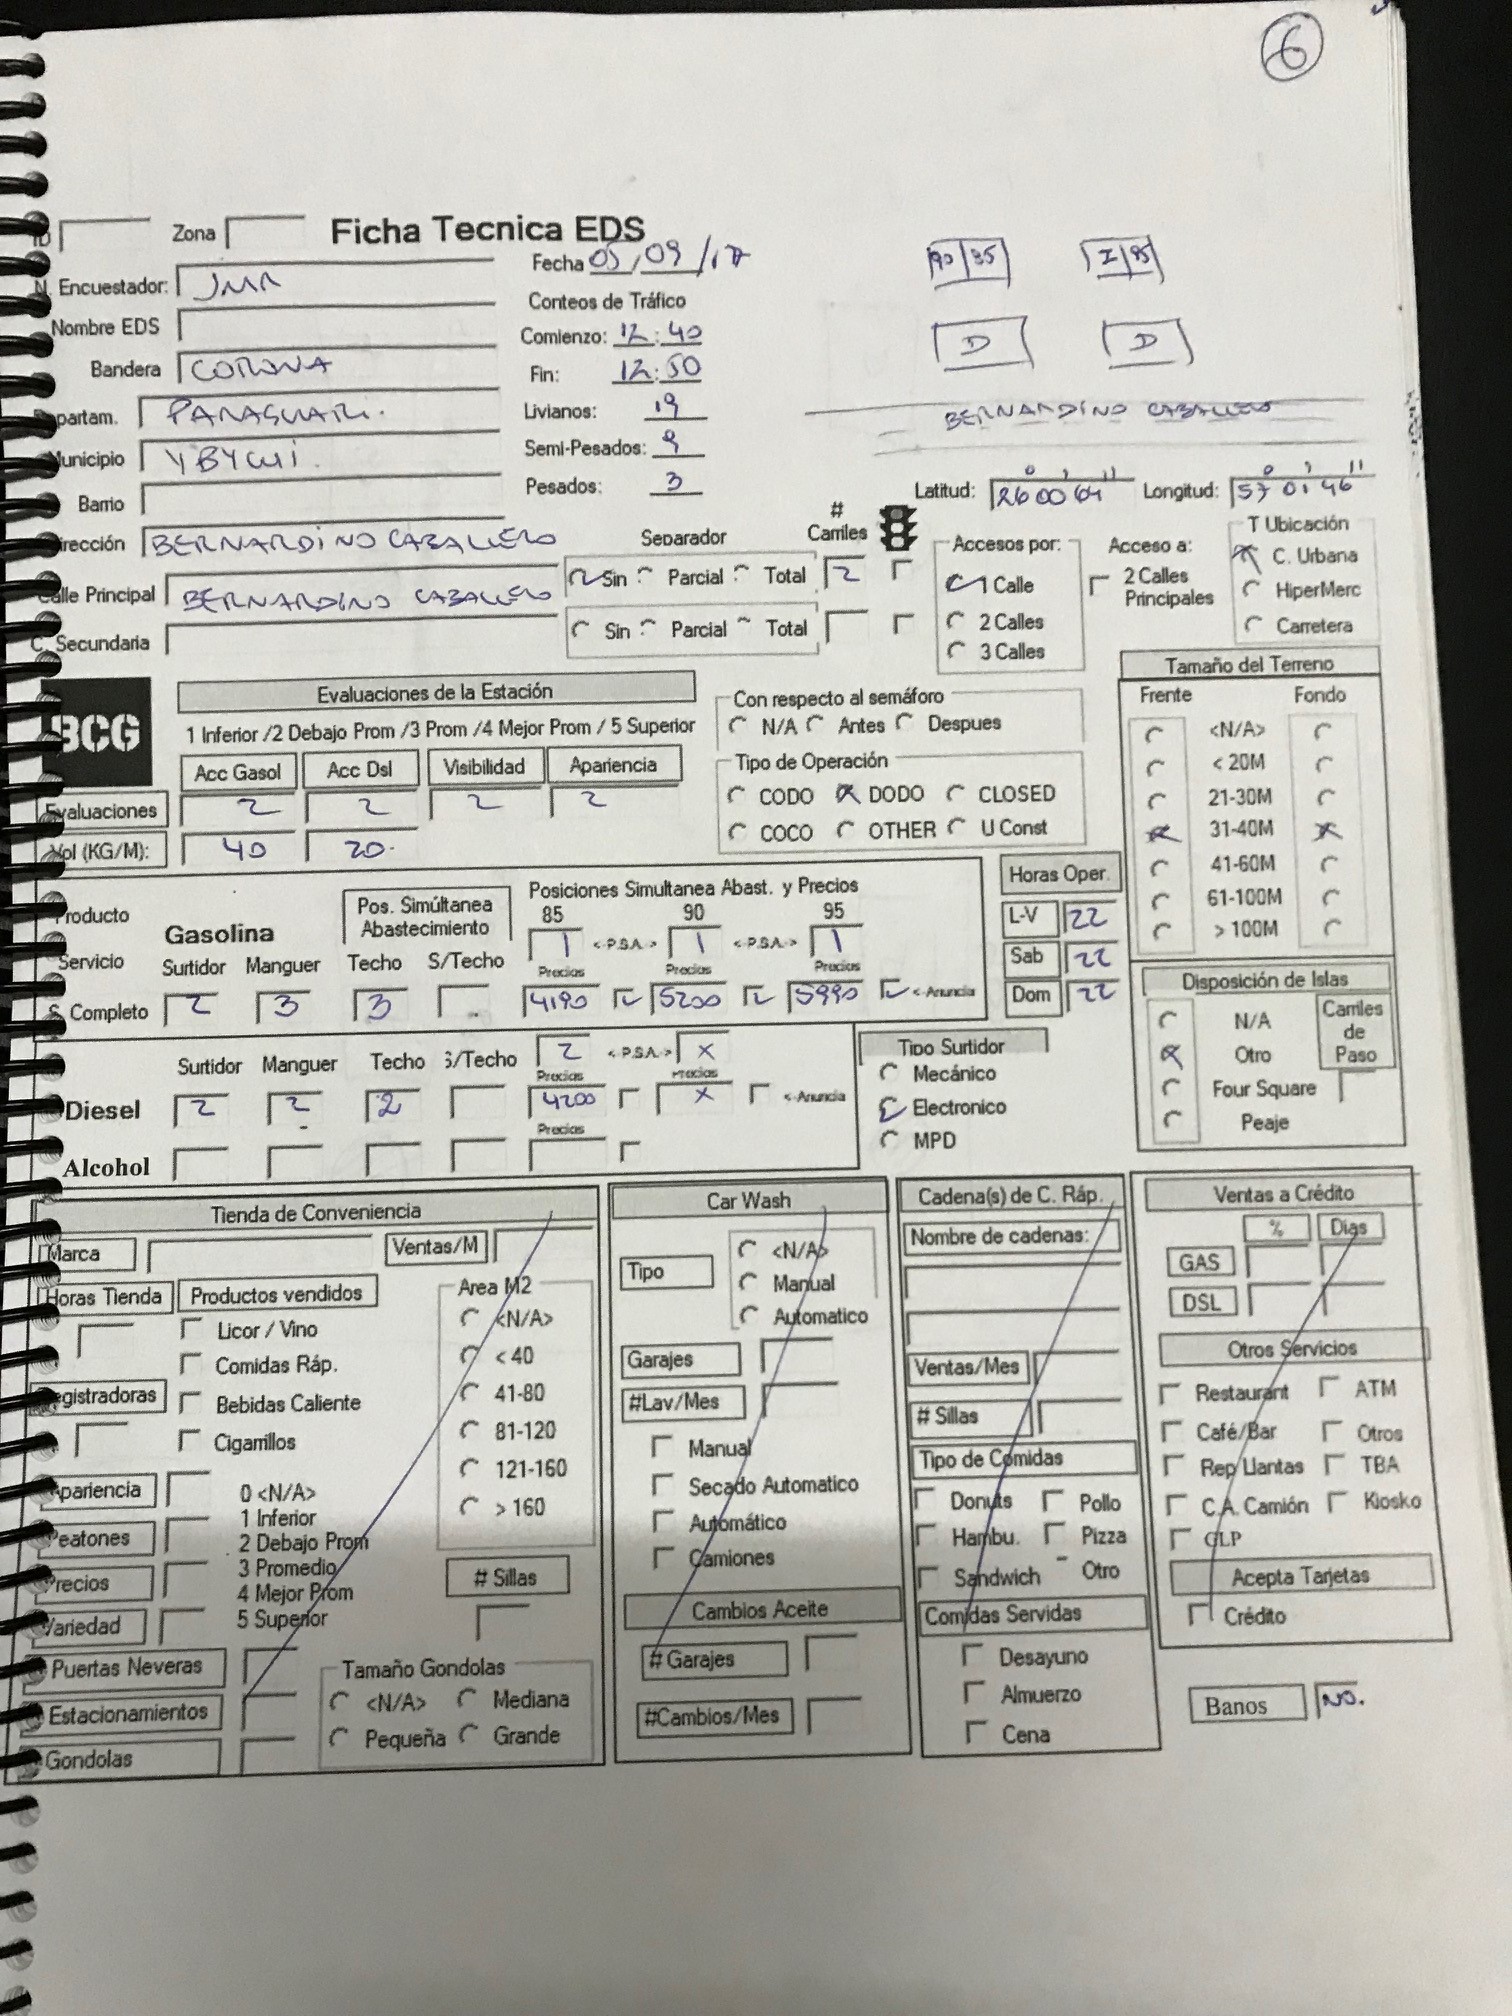 6
Zona Ficha Tecnica EDS
Fecha 05/09/17
90 85
95
N. Encuestador: JMR
Conteos de Tráfico
Nombre EDS
Comienzo: 12:40
D D
Bandera CORONA
Fin: 12:50
partam. PARAGUARI.
Livianos: 19
BERNARDINO CABALLERO
unicipio YBYCUI.
Semi-Pesados: 9
Barrio
Pesados: 3
Latitud: 260064 Longitud: 570146
° ' " ° ' "
irección BERNARDINO CABALLERO
Separador # Carriles Accesos por: Acceso a: T Ubicación
alle Principal BERNARDINO CABALLERO
Sin Parcial Total 2 1 Calle 2 Calles Principales C. Urbana
HiperMerc
C. Secundaria
Sin Parcial Total 2 Calles Carretera
3 Calles
BCG
Evaluaciones de la Estación
1 Inferior /2 Debajo Prom /3 Prom /4 Mejor Prom / 5 Superior
Acc Gasol Acc Dsl Visibilidad Apariencia
Evaluaciones 2 2 2 2
Vol (KG/M): 40 20.
Con respecto al semáforo
N/A Antes Despues
Tipo de Operación
CODO DODO CLOSED
COCO OTHER U Const
Tamaño del Terreno
Frente Fondo
<N/A>
< 20M
21-30M
31-40M
41-60M
61-100M
> 100M
Producto
Gasolina
Pos. Simúltanea Abastecimiento
Posiciones Simultanea Abast. y Precios
85 90 95
1 <-P.S.A.-> 1 <-P.S.A.-> 1
Servicio Surtidor Manguer Techo S/Techo Precios Precios Precios
S. Completo 2 3 3 4190 5200 5990 <-Anuncia
Horas Oper.
L-V 22
Sab 22
Dom 22
Disposición de Islas
N/A
Otro
Four Square
Peaje
Carriles de Paso
Surtidor Manguer Techo S/Techo 2 <-P.S.A.-> X
Precios Precios
Diesel 2 2 2 4200 X <-Anuncia
Precios
Alcohol
Tipo Surtidor
Mecánico
Electronico
MPD
Tienda de Conveniencia
Marca Ventas/M
Horas Tienda Productos vendidos Area M2
Licor / Vino <N/A>
Comidas Ráp. < 40
egistradoras Bebidas Caliente 41-80
Cigarrillos 81-120
121-160
> 160
Apariencia 0 <N/A>
1 Inferior
Peatones 2 Debajo Prom
3 Promedio
Precios 4 Mejor Prom
# Sillas
Variedad 5 Superior
Puertas Neveras
Estacionamientos
Gondolas
Tamaño Gondolas
<N/A> Mediana
Pequeña Grande
Car Wash
Tipo
<N/A>
Manual
Automatico
Garajes
#Lav/Mes
Manual
Secado Automatico
Automático
Camiones
Cambios Aceite
# Garajes
#Cambios/Mes
Cadena(s) de C. Ráp.
Nombre de cadenas:
Ventas/Mes
# Sillas
Tipo de Comidas
Donuts Pollo
Hambu. Pizza
Sandwich Otro
Comidas Servidas
Desayuno
Almuerzo
Cena
Ventas a Crédito
% Días
GAS
DSL
Otros Servicios
Restaurant ATM
Café/Bar Otros
Rep Llantas TBA
C.A. Camión Kiosko
GLP
Acepta Tarjetas
Crédito
Banos NO.